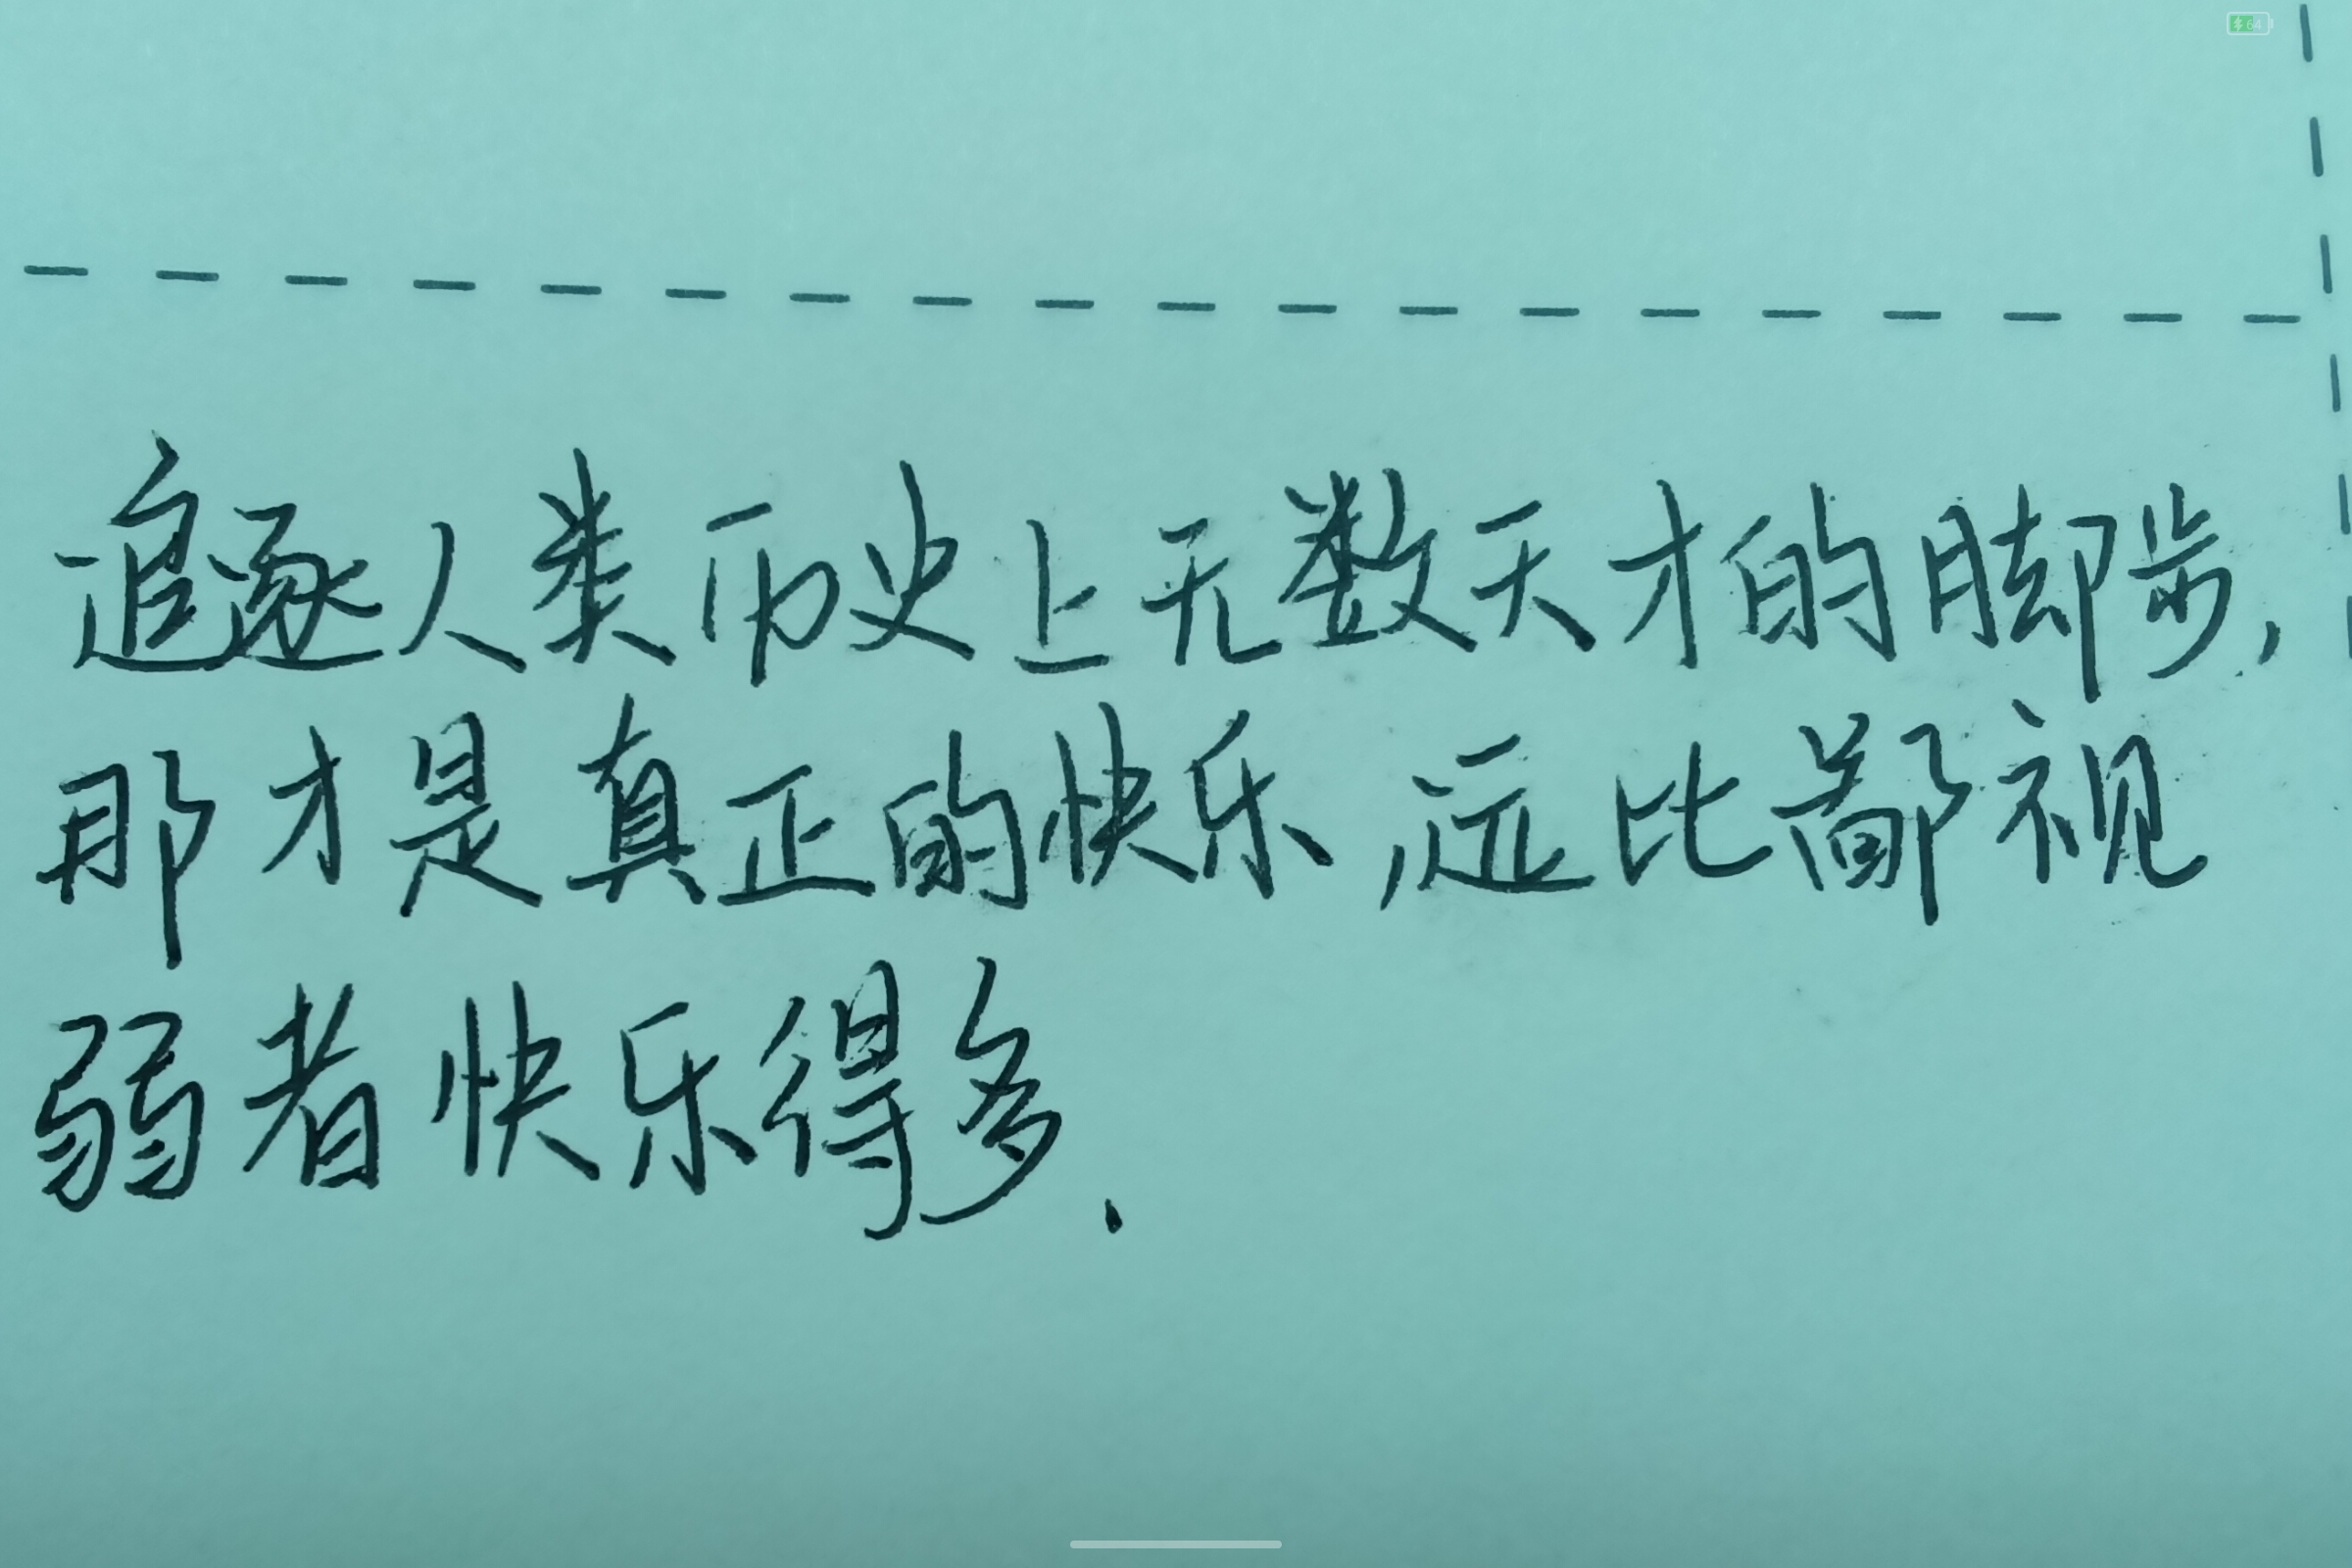 64
追逐人类历史上无数天才的脚步,
那才是真正的快乐,远比鄙视
弱者快乐得多.